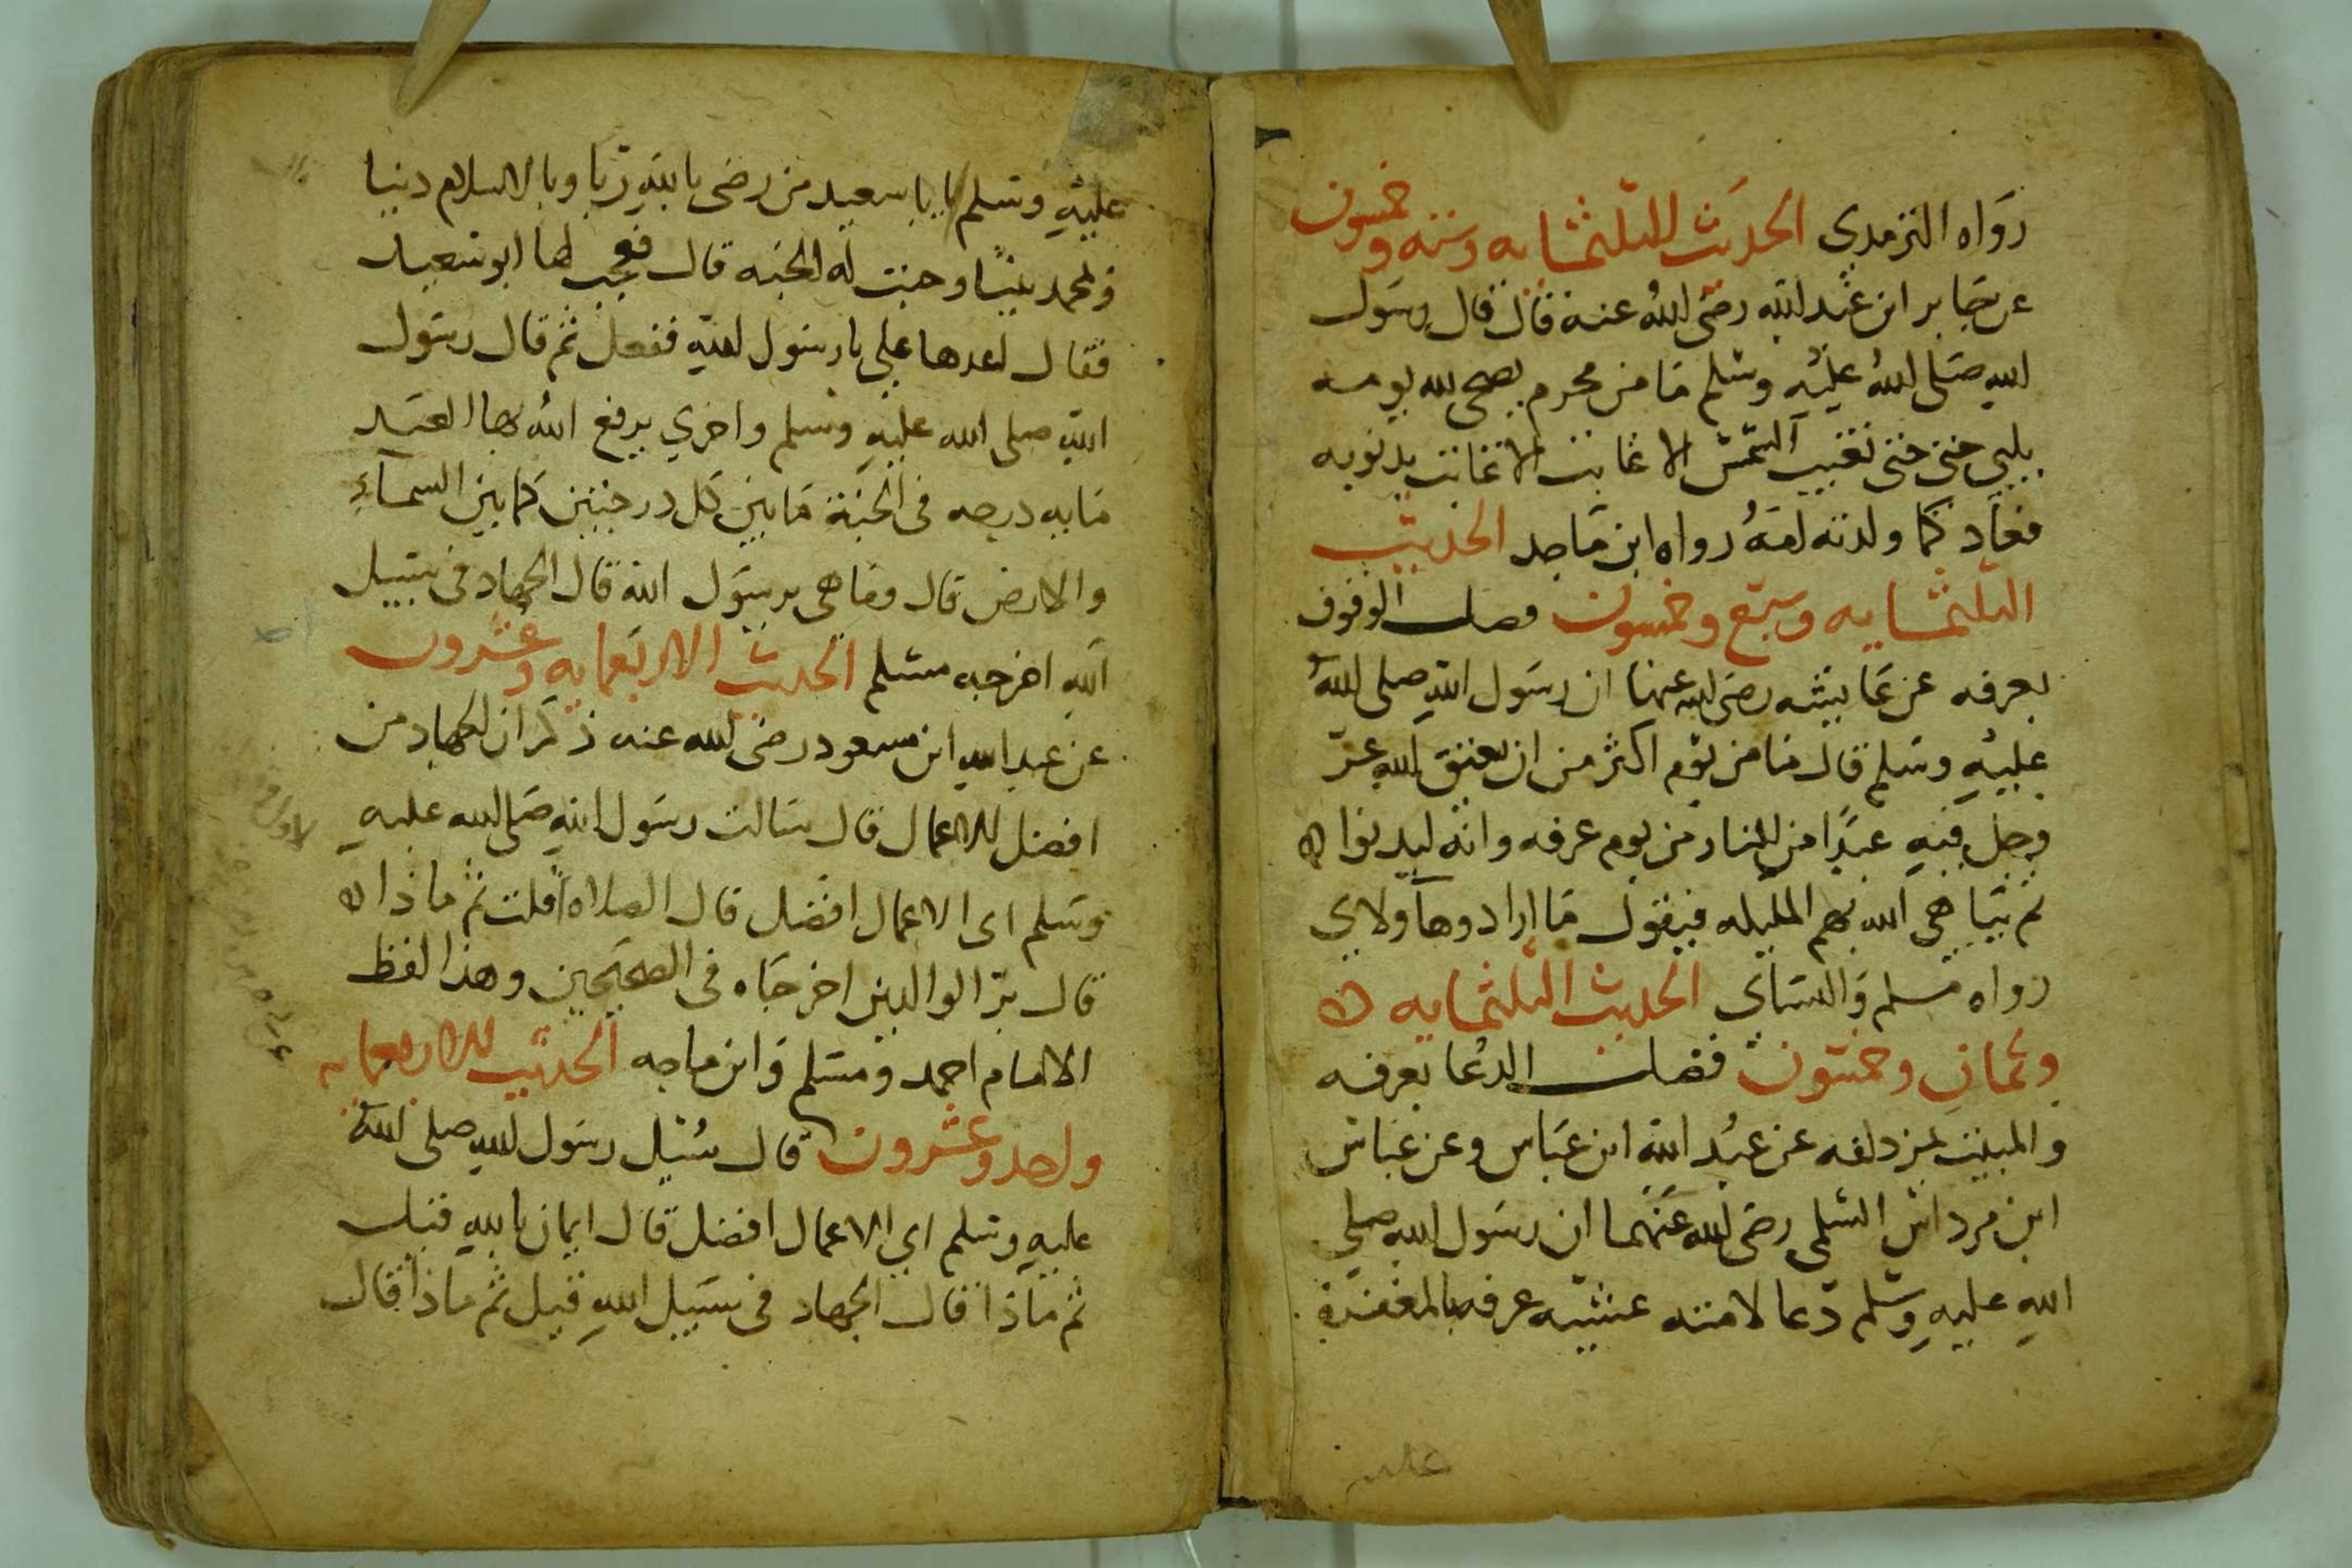 رواه الترمدى الحديث الثلثمايه وسته وخمسون
عن جابر ابن عبد الله رضى الله عنه قال قال رسول
الله صلى الله عليه وسلم ما من محرم يضحى لله يومه
يلبي حتى حتى تغيب الشمس الا غابت الا غابت بدنوبه
فعاد كما ولدته امه رواه ابن ماجه الحديث
الثلثمايه وسبع وخمسون فضل الوقوف
بعرفه عن عايشه رضى الله عنها ان رسول الله صلى الله
عليه وسلم قال ما من يوم اكثر من ان يعتق الله عز
وجل فيه عبدا من النار من يوم عرفه وانه ليدنوا
ثم يباهى الله بهم المليكه فيقول ما اراد وهآولاى
رواه مسلم والنساى الحديث الثلثمايه
وثمان وخمسون فضل الدعا بعرفه
والمبيت بمزدلفه عن عبد الله ابن عباس وعن عباس
ابن مرداس السلمى رضى الله عنهما ان رسول الله صلى
الله عليه وسلم دعا لامته عشيه عرفه بالمغفرة
عليه وسلم يابا سعيد من رضى بالله ربا وبالاسلام دينا
وبمحمد نبيا وجبت له الجنه قال فعجب لها ابو سعيد
فقال اعدها على يا رسول الله ففعل ثم قال رسول
الله صلى الله عليه وسلم واخري يرفع الله بها العبد
مايه درجه فى الجنة ما بين كل درجتين كما بين السمآء
والارض قال وما هى يرسول الله قال الجهاد فى سبيل
الله اخرجه مسلم الحديث الاربعمايه وعشرون
عن عبد الله ابن مسعود رضى الله عنه ذكر ان الجهاد من
افضل الاعمال قال سالت رسول الله صلى الله عليه
وسلم اى الاعمال افضل قال الصلاه قلت ثم ماذا
قال بر الوالدين اخرجاه فى الصحيحين وهذا لفظ
الامام احمد ومسلم وابن ماجه الحديث الاربعمايه
واحد وعشرون قال سئل رسول الله صلى الله
عليه وسلم اي الاعمال افضل قال ايمان بالله قيل
ثم ماذا قال الجهاد فى سبيل الله قيل ثم ماذا قال